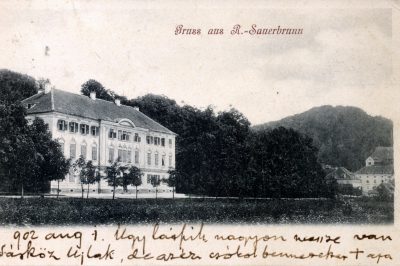 Gruss aus R.-Sauerbrunn
902 aug 1. Ugy látszik nagyon messze van
Ujlak, de azért csókol benneteket apa